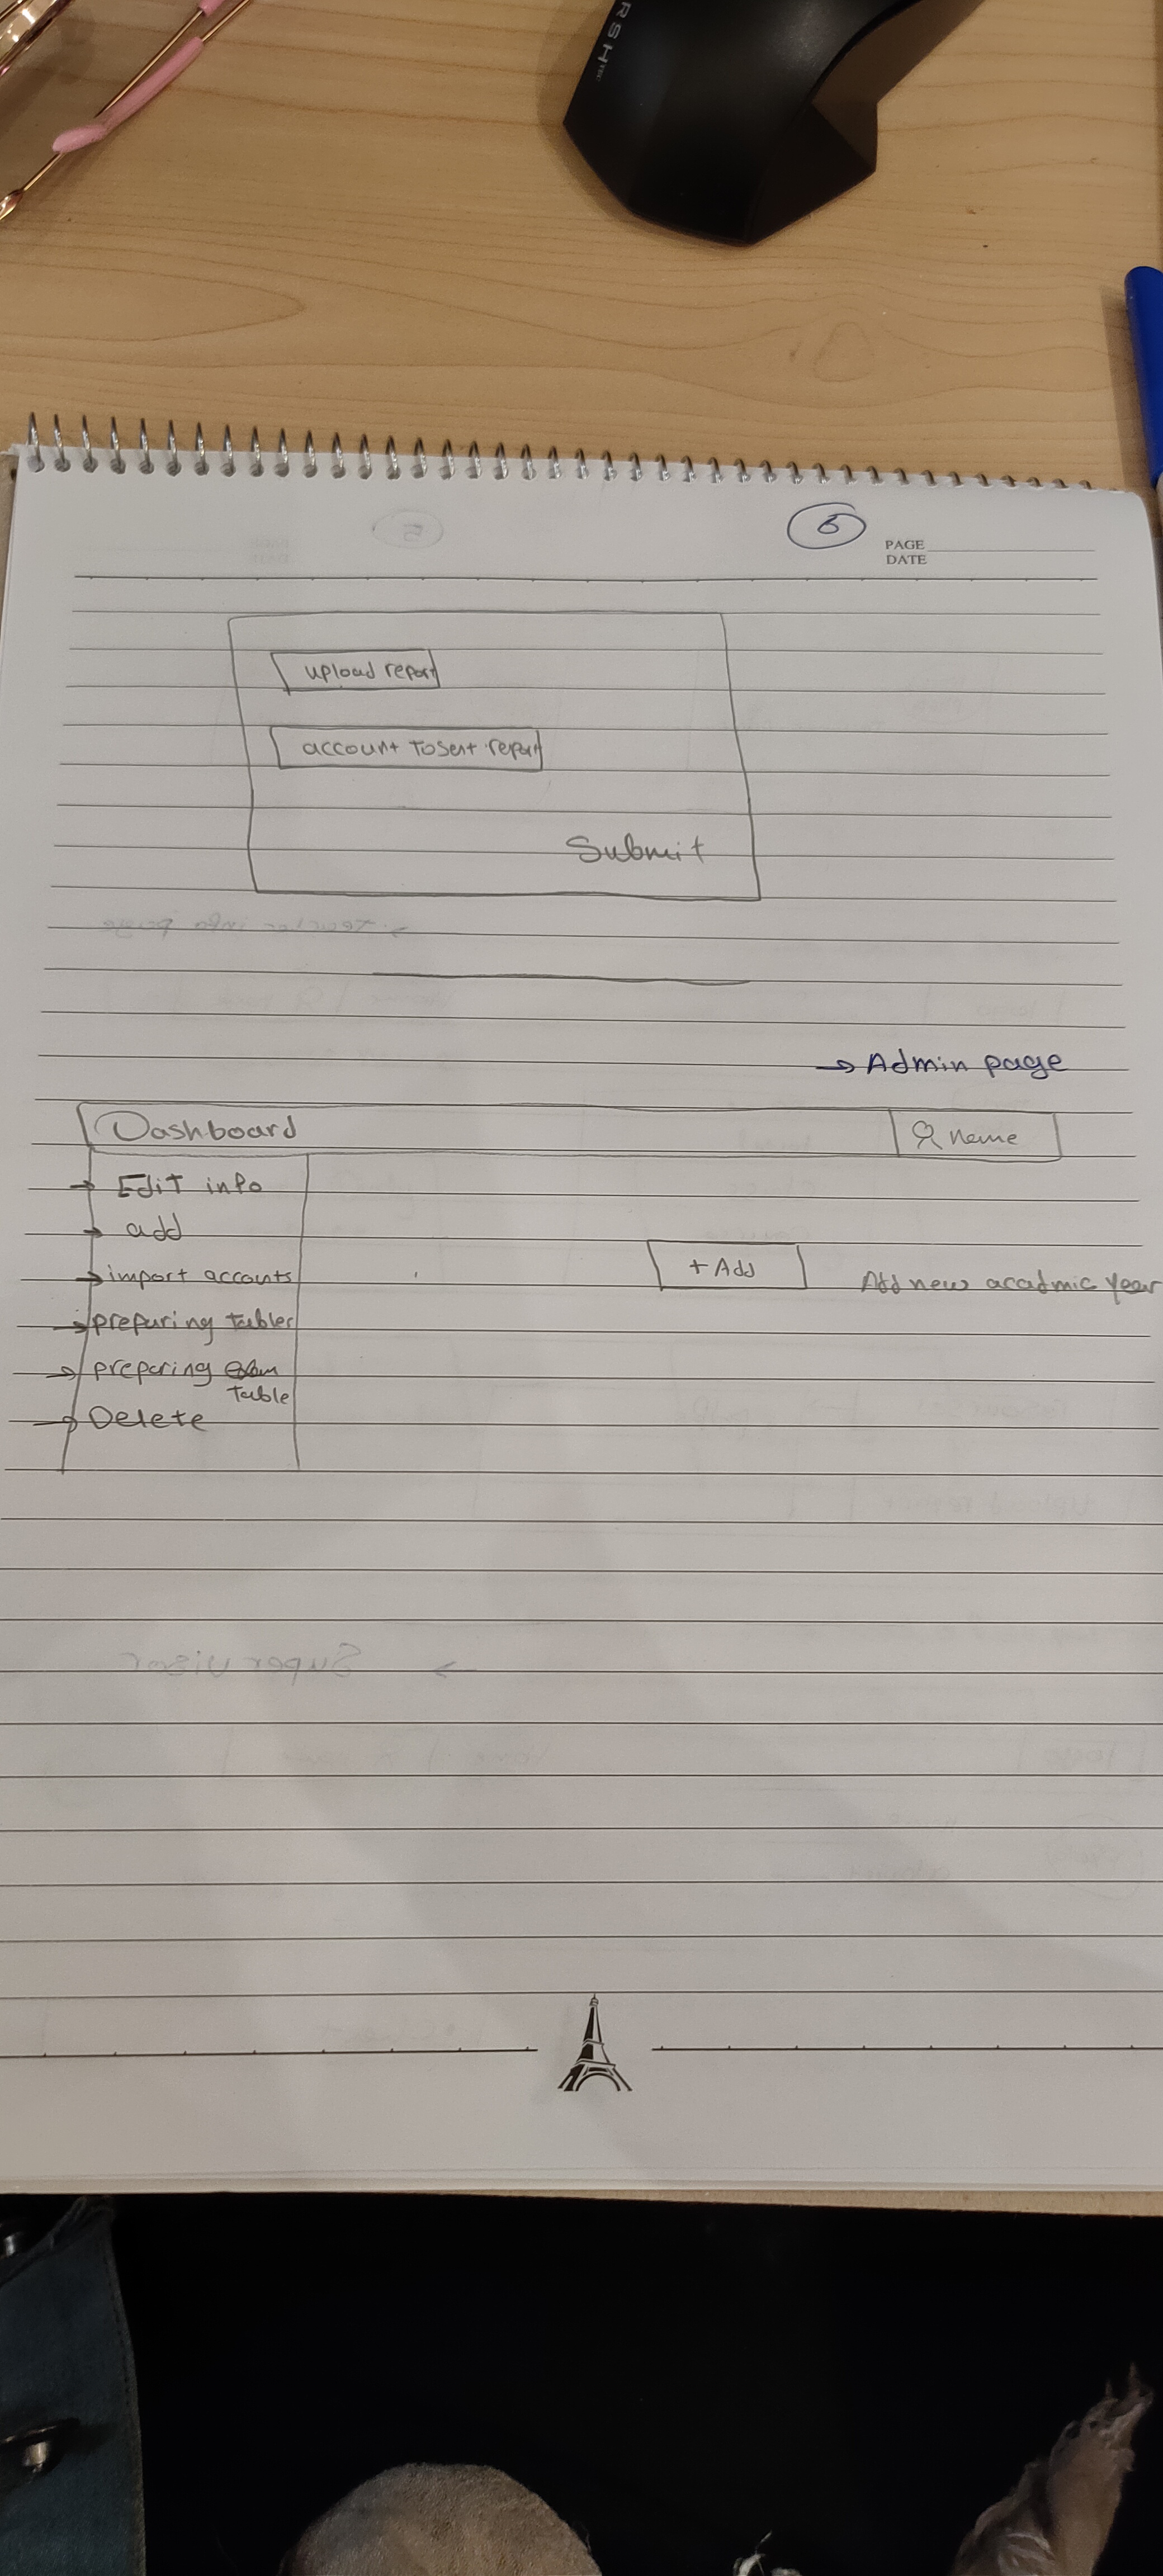 RSH
6
PAGE
DATE
upload report
account to sent report
Submit
→ Admin page
Dashboard
name
→ Edit info
→ add
→ import accounts
→ preparing tables
→ preparing exam
table
→ Delete
+ Add
Add new acadmic year